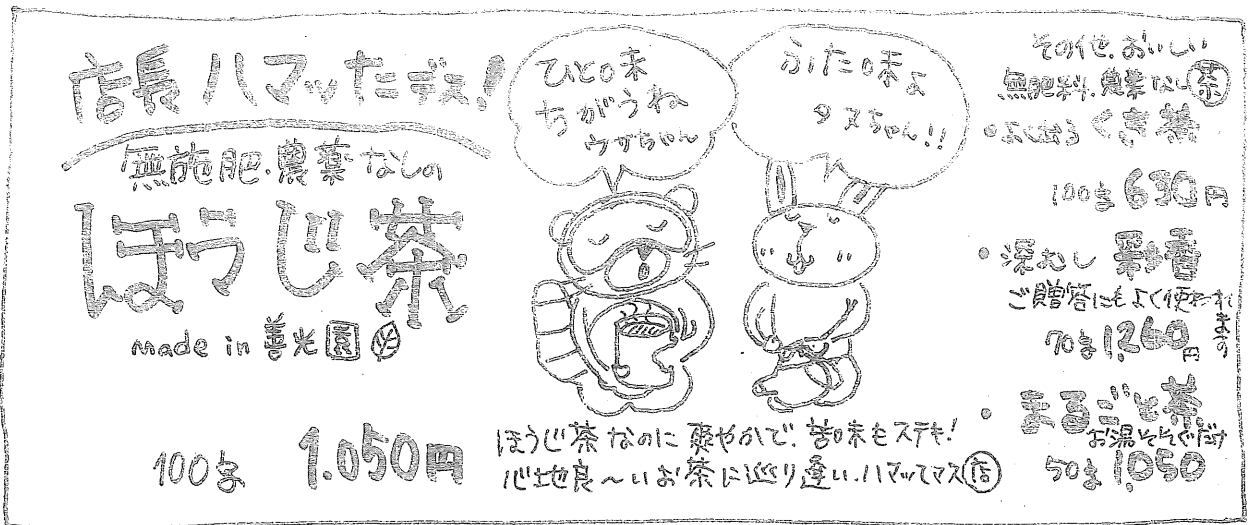 店長ハマッたデス!
無施肥・農薬なしの
ほうじ茶
made in 善光園
100g 1.050円
ひと味
ちがうね
ウサちゃん
ふた味よ
タヌちゃん!!
ほうじ茶なのに爽やかで、苦味もステキ!
心地良〜いお茶に巡り逢い、ハマッてマス店
その他、おいしい
無肥料、農薬なし茶
・よく出る くき茶
100g 630円
・深むし 彩香
ご贈答にもよく使われます
70g 1,260円
・まるごと茶
お湯そそぐだけ
50g 1,050